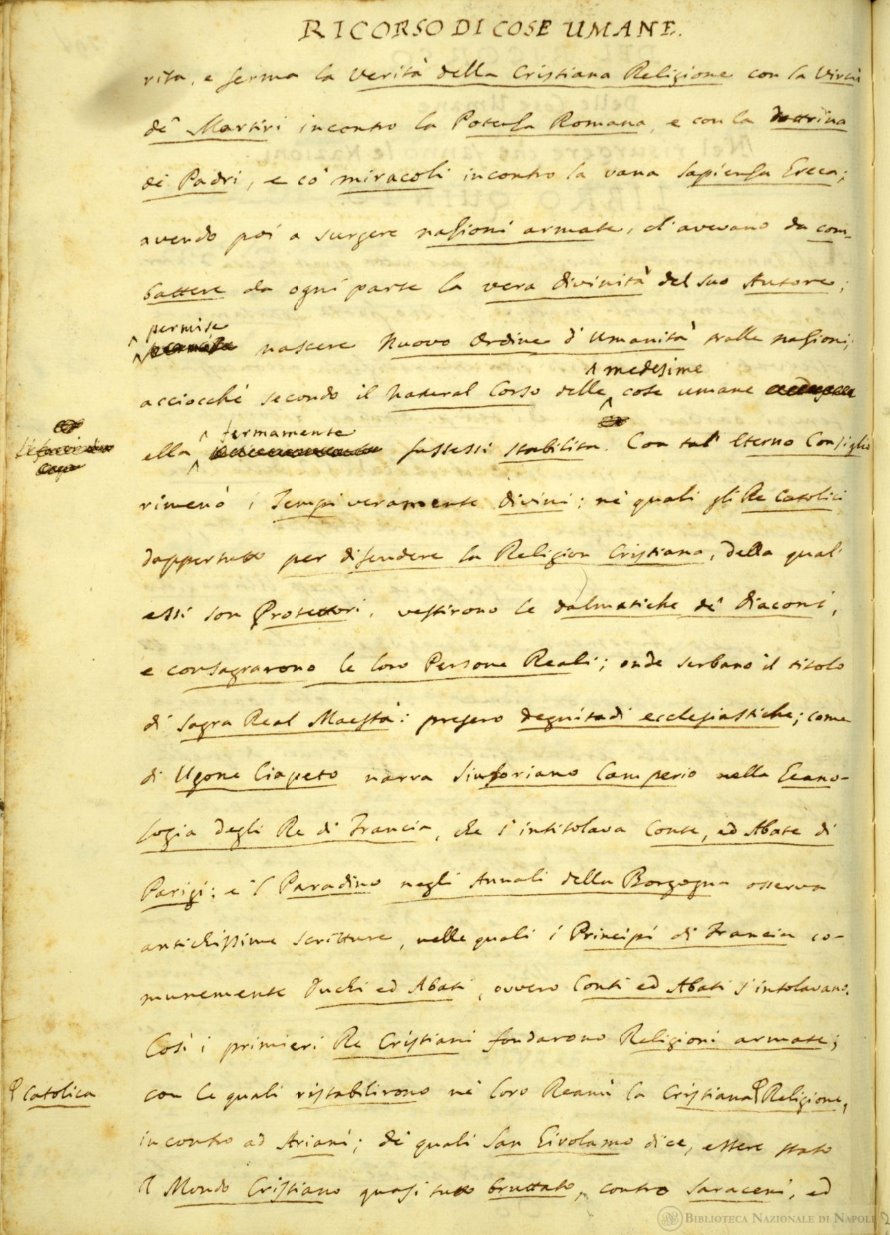 RICORSO DI COSE UMANE.
rita, e ferma la Verità della Cristiana Religione con la Virtù
de' Martiri incontro la Potenza Romana, e con la dottrina
de' Padri, e co' miracoli incontro la vana Sapienza Greca;
avendo poi a surgere nazioni armate, ch'avevano da com-
battere da ogni parte la vera divinità del suo Autore;
permise
nascere Nuovo Ordine d'Umanità tralle nazioni;
medesime
acciocché secondo il Natural Corso delle cose umane
fermamente
ella fussesi stabilita. Con tal' Eterno Consiglio
rimenò i Tempi veramente divini; ne' quali gli Re Catolici
dappertutto per difendere la Religion Cristiana, della qual'
essi son Protettori, vestirono le dalmatiche de' Diaconi,
e consagrarono le loro Persone Reali; onde serbano il titolo
di Sagra Real Maestà: presero degnitadi ecclesiastiche; come
di Ugone Ciapeto narra Sinforiano Camperio nella Geano-
logia degli Re di Francia, che s'intitolava Conte, ed Abate di
Parigi; e 'l Paradino negli Annali della Borgogna osserva
antichissime scritture, nelle quali i Principi di Francia co-
munemente Duchi ed Abati, ovvero Conti ed Abati s'intolavano.
Così i primieri Re Cristiani fondarono Religioni armate;
Catolica
con le quali ristabilirono ne' loro Reami la Cristiana Religione,
incontro ad Ariani; de' quali San Girolamo dice, essere stato
il Mondo Cristiano quasi tutto bruttato, contro Saraceni, ed
BIBLIOTECA NAZIONALE DI NAPOLI